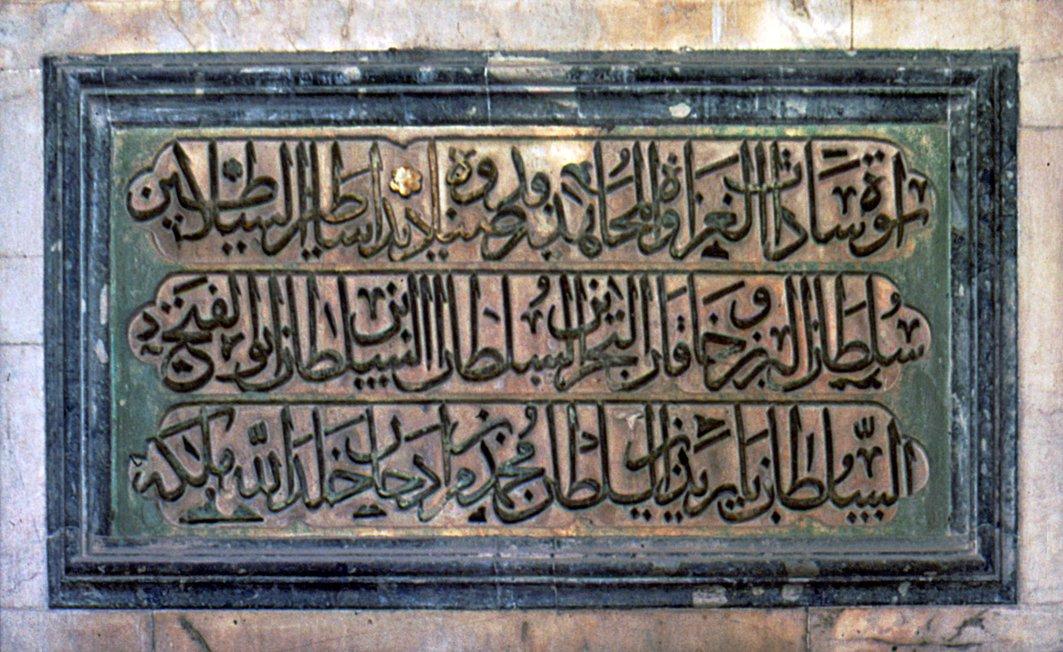 اسوة سادات الغزاة والمجاهدين وذروة صناديد اساطين السلاطين
سلطان البرين وخاقان البحرين السلطان ابن السلطان ابو الفتح
السلطان بايزيد بن السلطان محمد بن مراد خان خلد الله ملكه